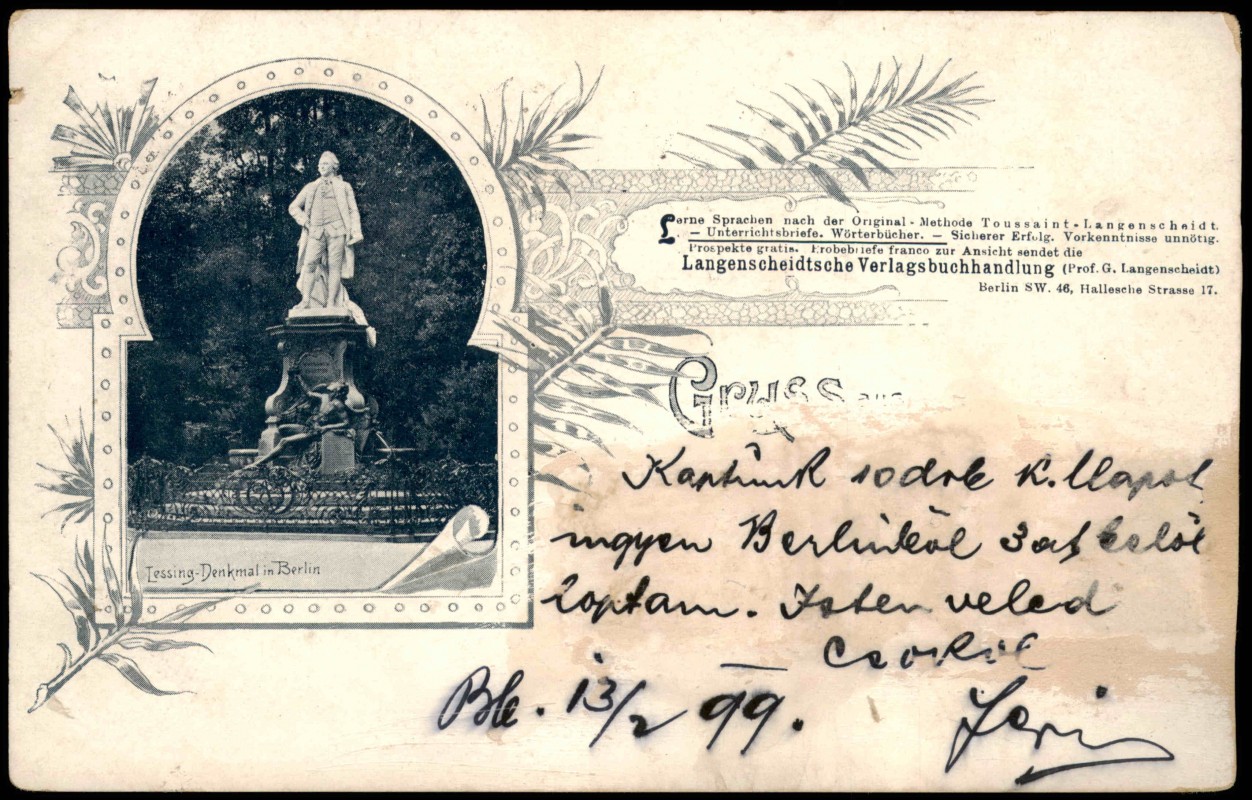 Lessing-Denkmal in Berlin
Lerne Sprachen nach der Original-Methode Toussaint-Langenscheidt.
— Unterrichtsbriefe. Wörterbücher. — Sicherer Erfolg. Vorkenntnisse unnötig.
Prospekte gratis. Probebriefe franco zur Ansicht sendet die
Langenscheidtsche Verlagsbuchhandlung (Prof. G. Langenscheidt)
Berlin SW. 46, Hallesche Strasse 17.
Gruss aus
K.
ingyen 3
Kaptam. Isten veled
— Csókol
13/2 99.